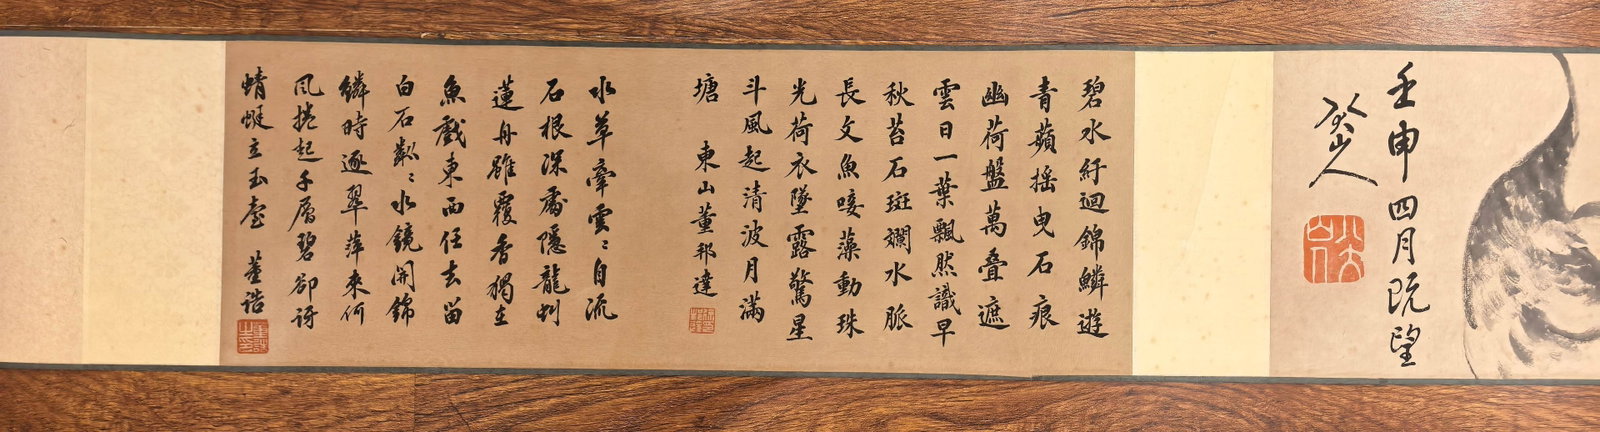 壬申四月既望
八大山人
碧水紆迴錦鱗遊
青蘋摇曳石痕
幽荷盤萬叠遮
雲日一葉飄然識早
秋苔石斑斕水脈
長文魚唼藻動珠
光荷衣墜露驚星
斗風起清波月滿
塘 東山董邦達
水草牽雲〻自流
石根深處隱龍虬
蓮舟雖覆香猶在
魚戲東西任去留
白石粼〻水鏡開錦
鱗時逐翠萍來何
風捲起千層碧卻訝
蜻蜓立玉臺 董誥